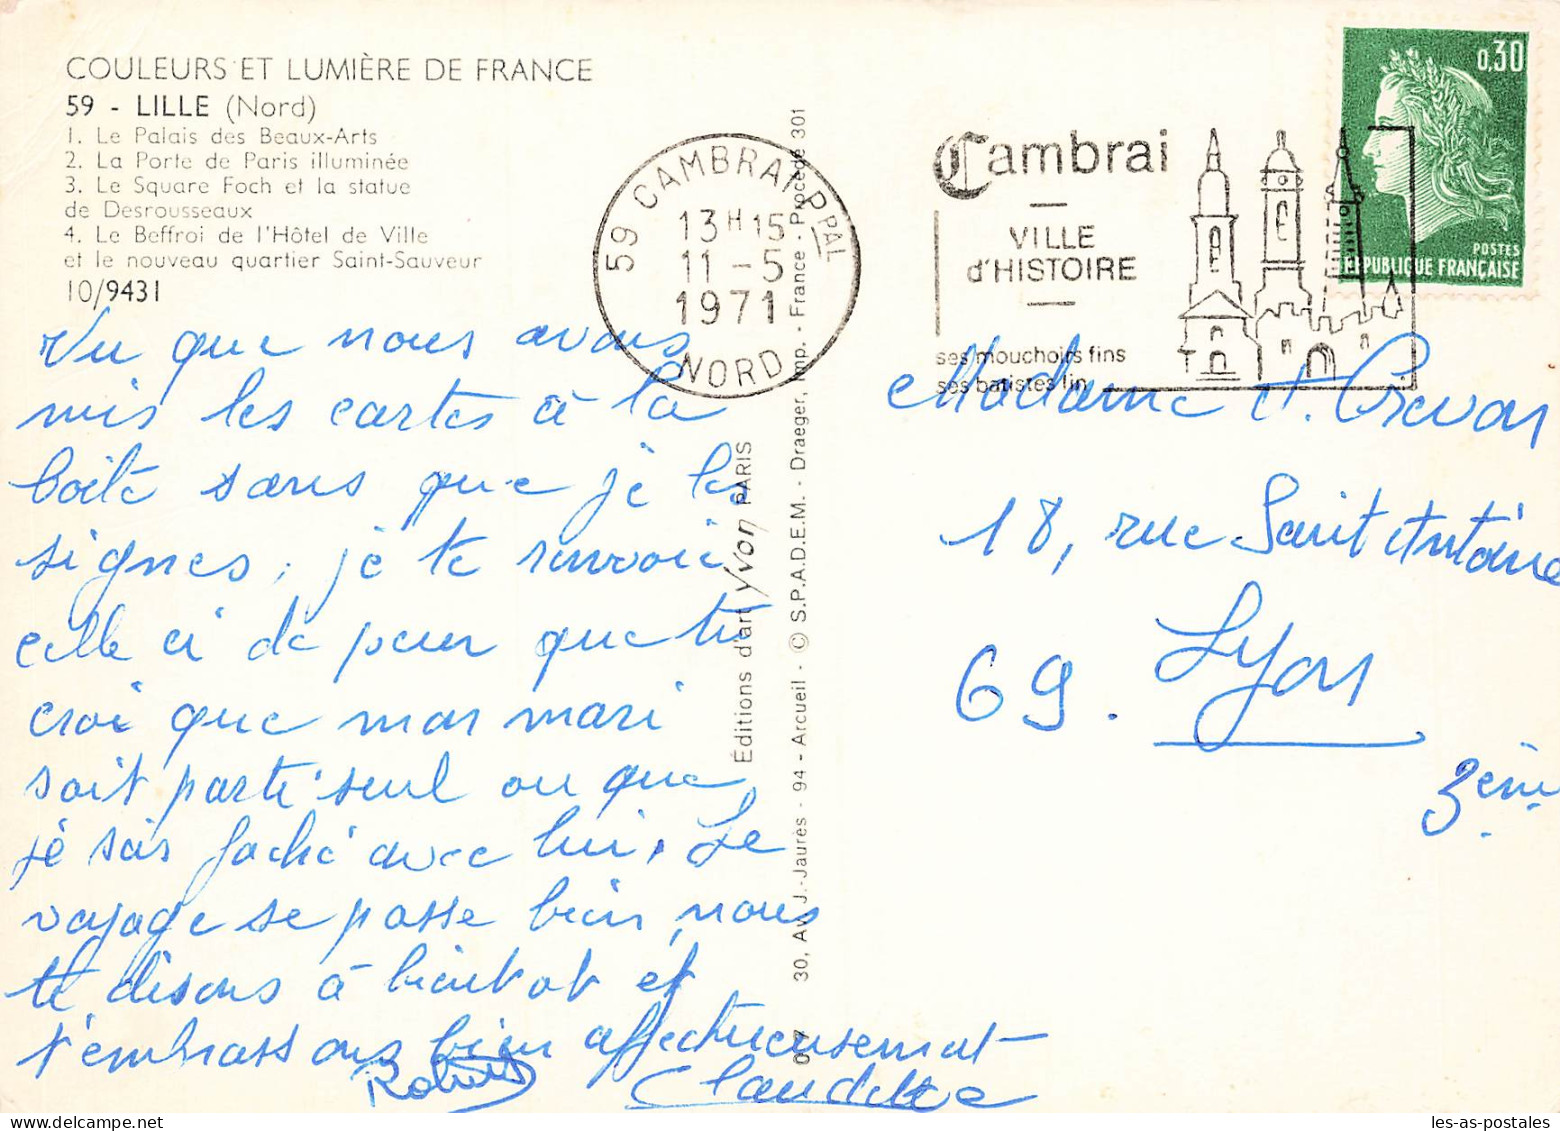 COULEURS ET LUMIÈRE DE FRANCE
59 - LILLE (Nord)
1. Le Palais des Beaux-Arts
2. La Porte de Paris illuminée
3. Le Square Foch et la statue
de Desrousseaux
4. Le Beffroi de l'Hôtel de Ville
et le nouveau quartier Saint-Sauveur
10/9431
Vu que nous avons
mis les cartes à la
boîte sans que je les
signes, je te renvoie
celle ci de peur que tu
croi que mon mari
soit parti seul ou que
je sois faché avec lui. Le
voyage se passe bien, nous
te disons à bientot et
t'embrassons bien affectueusement
Robert
Claudette
59 CAMBRAI PPAL
13H15
11-5
1971
NORD
Cambrai
VILLE
d'HISTOIRE
ses mouchoirs fins
ses batistes lin
0,30
POSTES
REPUBLIQUE FRANÇAISE
Éditions d'art Yvon PARIS
30, Av. J.-Jaurès - 94 - Arcueil - © S.P.A.D.E.M. - Draeger, Imp. - France - Procédé 301
Madame
18, rue Saint Antoine
69. Lyon
3ème
les-as-postales.delcampe.net